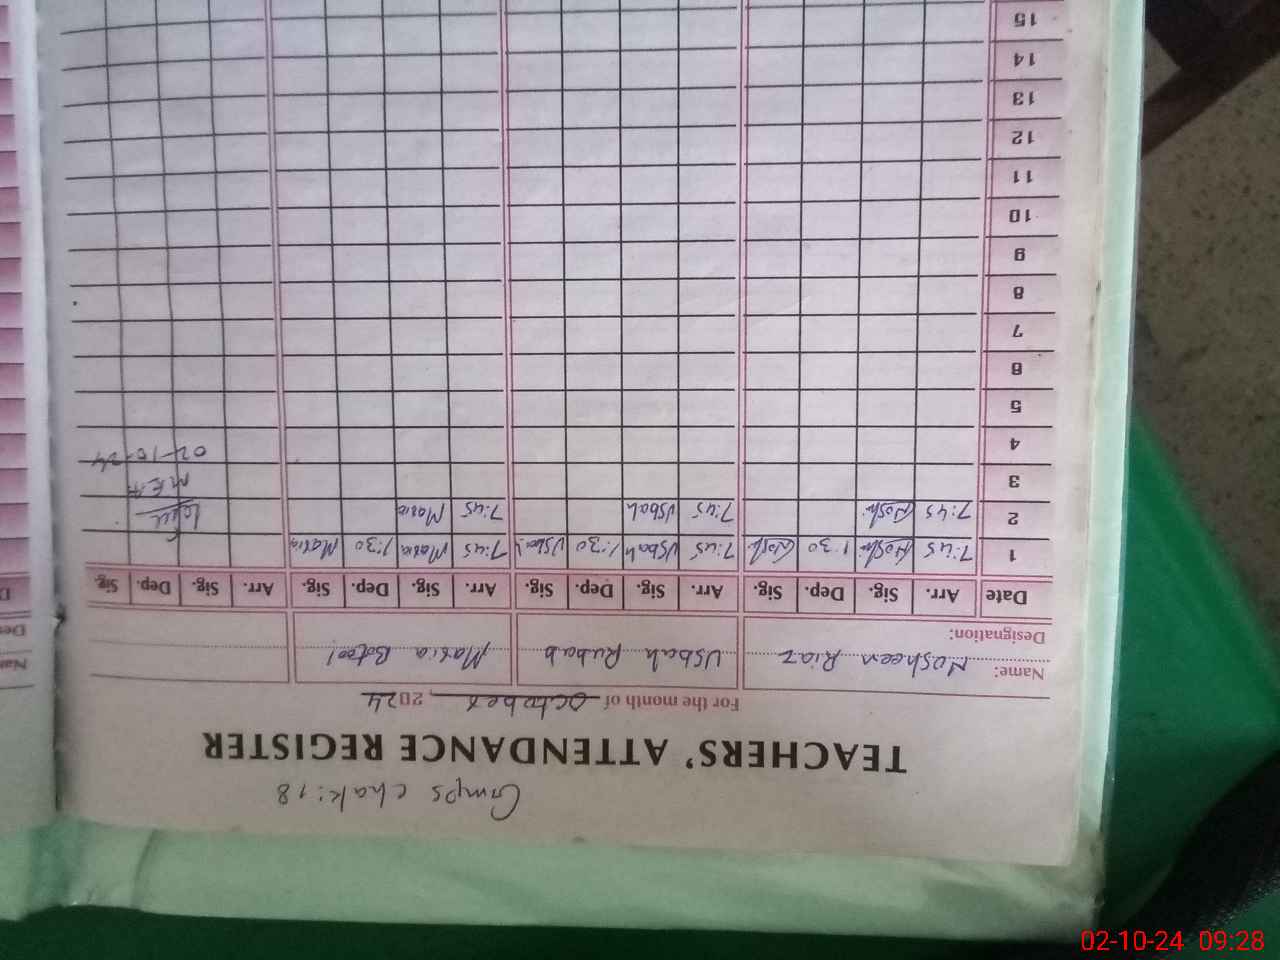 Gmps chak:18
TEACHERS' ATTENDANCE REGISTER
For the month of October, 2024
Name: Nosheen Riaz Usbah Rubab Maria Batool
Designation:
Date Arr. Sig. Dep. Sig. Arr. Sig. Dep. Sig. Arr. Sig. Dep. Sig. Arr. Sig. Dep. Sig.
1 7:45 Noshi 1:30 Noshi 7:45 Usbah 1:30 Usbah 7:45 Maria 1:30 Maria
2 7:45 Noshi 7:45 Usbah 7:45 Maria
3 MEA
4 02-10-24
5
6
7
8
9
10
11
12
13
14
15
02-10-24 09:28